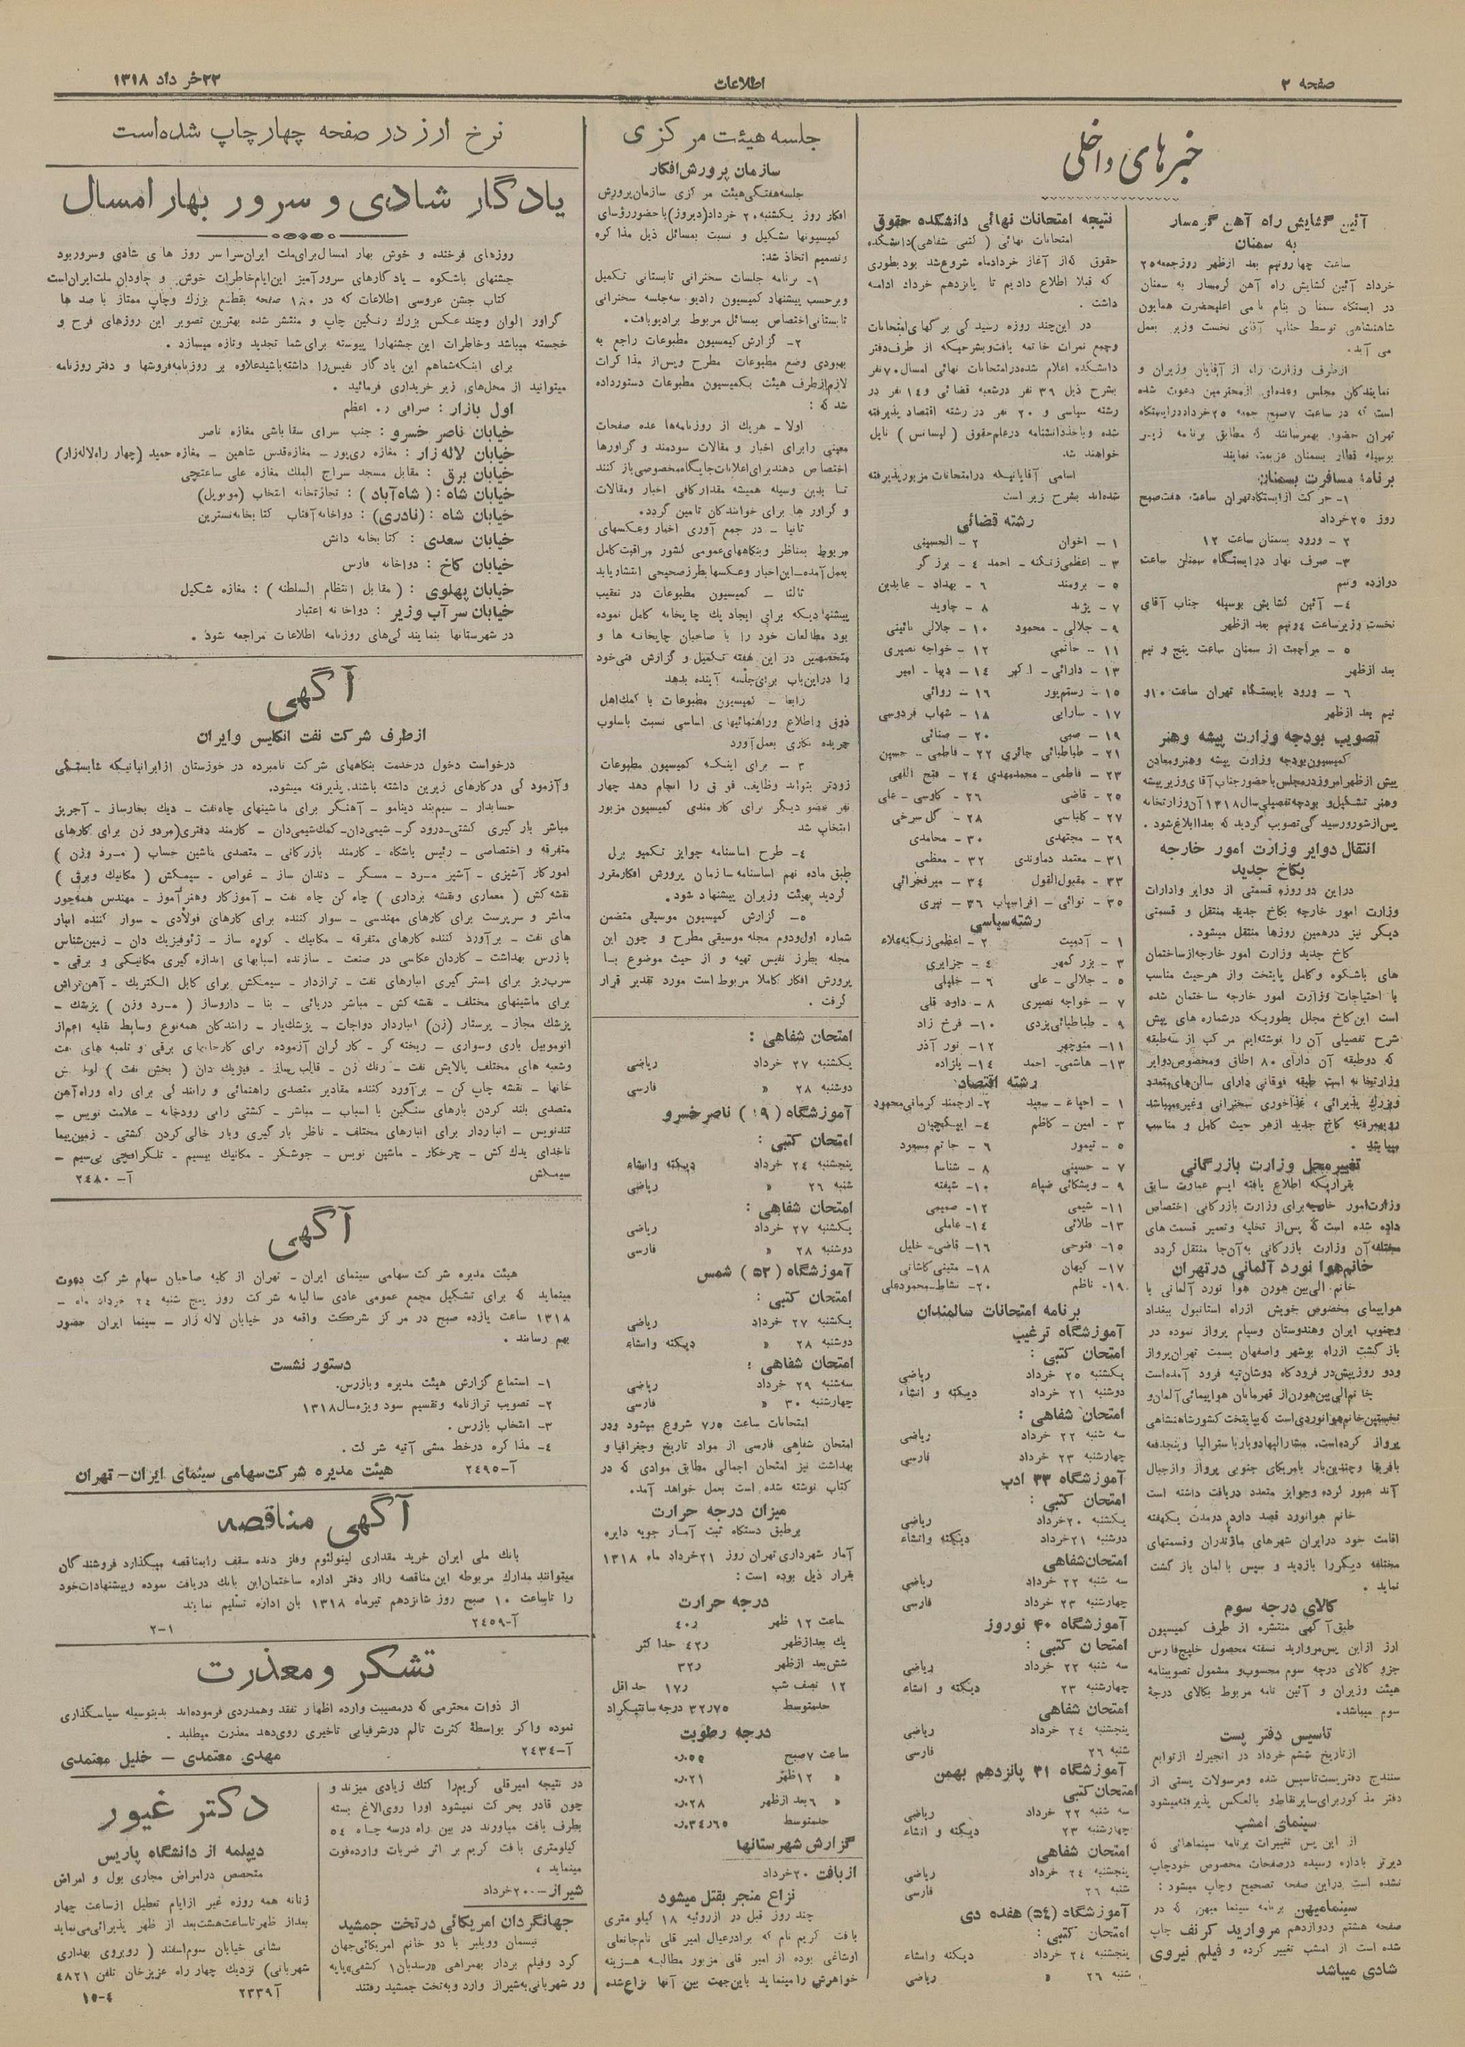 صفحه ۲
اطلاعات
۲۲ خرداد ۱۳۱۸
خبرهای داخلی
آئین گشایش راه آهن گرمسار
به سمنان
ساعت چهارونیم بعد ازظهر روزجمعه ۲۵
خرداد آئین گشایش راه آهن گرمسار به سمنان
در ایستگاه سمنان بنام نامی اعلیحضرت همایون
شاهنشاهی توسط جناب آقای نخست وزیر بعمل
می آید.
ازطرف وزارت راه از آقایان وزیران و
نمایندگان مجلس وعده‌ای ازمحترمین دعوت شده
است که در ساعت ۷ صبح جمعه ۲۵ خرداد درایستگاه
تهران حضور بهمرسانند که مطابق برنامه زیر
بوسیله قطار بسمنان عزیمت نمایند
برنامه مسافرت بسمنان:
۱- حرکت ازایستگاه تهران ساعت هفت صبح
روز ۲۵ خرداد
۲ - ورود بسمنان ساعت ۱۲
۳- صرف نهار درایستگاه سمنان ساعت
دوازده ونیم
۴- آئین گشایش بوسیله جناب آقای
نخست وزیر ساعت ۴ ونیم بعد ازظهر
۵ - مراجعت از سمنان ساعت پنج و نیم
بعد ازظهر
۶ - ورود بایستگاه تهران ساعت ۱۰ و
نیم بعد ازظهر
تصویب بودجه وزارت پیشه وهنر
کمیسیون بودجه وزارت پیشه وهنر ومعادن
پیش ازظهر امروز درمجلس باحضور جناب آقای وزیر پیشه
وهنر تشکیل و بودجه تفصیلی سال ۱۳۱۸ آن وزارتخانه
پس ازشور و رسیدگی تصویب گردید که بعدا ابلاغ شود.
انتقال دوایر وزارت امور خارجه
بکاخ جدید
دراین دو روزه قسمتی از دوایر وادارات
وزارت امور خارجه بکاخ جدید منتقل و قسمتی
دیگر نیز درهمین روزها منتقل میشود.
کاخ جدید وزارت امور خارجه ازساختمان
های باشکوه وکامل پایتخت واز هرحیث مناسب
با احتیاجات وزارت امور خارجه ساختمان شده
است این کاخ مجلل بطوریکه درشماره های پیش
شرح تفصیلی آن را نوشته‌ایم مرکب از سه طبقه
که دو طبقه آن دارای ۸۰ اطاق ومخصوص دوایر
وزارتخانه است طبقه فوقانی دارای سالن‌های متعدد
وبزرگ پذیرائی، غذاخوری سخنرانی وغیره میباشد
رویهمرفته کاخ جدید ازهر حیث کامل و مناسب
میباشد.
تغییر محل وزارت بازرگانی
بقراریکه اطلاع یافته ایم عمارت سابق
وزارت امور خارجه برای وزارت بازرگانی اختصاص
داده شده است که پس از تخلیه وتعمیر قسمت های
مختلفه آن وزارت بازرگانی به آن جا منتقل گردد
خانم هوا نورد آلمانی در تهران
خانم الی بین هورن هوا نورد آلمانی با
هواپیمای مخصوص خویش ازراه استانبول ببغداد
وجنوب ایران وهندوستان وسیام پرواز نموده در
بازگشت ازراه بوشهر واصفهان بسمت تهران پرواز
ودو روز پیش در فرودگاه دوشان تپه فرود آمده است
خانم الی بین هورن از قهرمانان هواپیمائی آلمان و
نخستین خانم هوانوردی است که بپایتخت کشور شاهنشاهی
پرواز کرده است. مشارالیها دوبار باسترالیا وپنجدفعه
بافریقا وچندین بار بامریکای جنوبی پرواز وازجبال
آند عبور کرده وجوایز متعدد دریافت داشته است
خانم هوانورد قصد دارد درمدت یکهفته
اقامت خود درایران شهرهای مازندران وقسمتهای
مختلفه دیگر را بازدید و سپس بآلمان بازگشت
نماید.
کالای درجه سوم
طبق آگهی منتشره از طرف کمیسیون
ارز ازاین پس مروارید نسفته محصول خلیج فارس
جزو کالای درجه سوم محسوب و مشمول تصویبنامه
هیئت وزیران و آئین نامه مربوط بکالای درجه
سوم میباشد.
تاسیس دفتر پست
ازتاریخ ششم خرداد در انجیرک ازتوابع
سنندج دفترپست تاسیس شده ومرسولات پستی از
دفتر مذکور برای سایر نقاط و بالعکس پذیرفته میشود
سینمای امشب
از این پس تغییرات برنامه سینماهائی که
دیرتر باداره رسیده درصفحات مخصوص خود چاپ
نشده است دراین صفحه تصحیح وچاپ میشود:
سینما میهن برنامه سینما میهن که در
صفحه هشتم ودوازدهم مروارید کرنف چاپ
شده است از امشب تغییر کرده و فیلم نیروی
شادی میباشد
نتیجه امتحانات نهائی دانشکده حقوق
امتحانات نهائی (کتبی شفاهی) دانشکده
حقوق که از آغاز خرداد ماه شروع شد بود بطوری
که قبلا اطلاع دادیم تا پانزدهم خرداد ادامه
داشت.
در این چند روزه رسیدگی برگهای امتحانات
وجمع نمرات خاتمه یافت وبشرحیکه از طرف دفتر
دانشکده اعلام شده درامتحانات نهائی امسال ۷۰ نفر
بشرح ذیل ۳۹ نفر درشعبه قضائی و ۱۴ نفر در
رشته سیاسی و ۲۰ نفر در رشته اقتصاد پذیرفته
شده وباخذ دانشنامه درعلم حقوق (لیسانس) نایل
خواهند شد
اسامی آقایانیکه درامتحانات مزبور پذیرفته
شده‌اند بشرح زیر است
رشته قضائی
۱ - اخوان ۲ - الحسینی
۳ - اعظمی زنگنه - احمد ۴ - برزگر
۵ - برومند ۶ - بهداد - عابدین
۷ - یزد ۸ - جاوید
۹ - جلالی - محمود ۱۰ - جلالی نائینی
۱۱ - حاتمی ۱۲ - خواجه نصیری
۱۳ - دارائی - اکبر ۱۴ - دیبا - امیر
۱۵ - رستم پور ۱۶ - روائی
۱۷ - سارایی ۱۸ - شهاب فردوسی
۱۹ - صبی ۲۰ - صنائی
۲۱ - طباطبائی جائری ۲۲ - فاطمی - حسین
۲۳ - فاطمی - محمدمهدی ۲۴ - فتح اللهی
۲۵ - قاضی ۲۶ - کاوسی - علی
۲۷ - کلباسی ۲۸ - گل سرخی
۲۹ - مجتهدی ۳۰ - محامدی
۳۱ - معتمد دماوندی ۳۲ - معظمی
۳۳ - مقبول القول ۳۴ - میرفخرائی
۳۵ - نوائی - افراسیاب ۳۶ - نیری
رشته سیاسی
۱ - آدمیت ۲ - اعظمی زنگنه علاء
۳ - بزرگمهر ۴ - جزایری
۵ - جلالی - علی ۶ - خلیلی
۷ - خواجه نصیری ۸ - داود قلی
۹ - طباطبائی یزدی ۱۰ - فرخ زاد
۱۱ - منوچهر ۱۲ - نور آذر
۱۳ - هاشمی - احمد ۱۴ - یازاده
رشته اقتصاد
۱ - احیاء - سعید ۲ - ارجمند کرمانی محمود
۳ - امین - کاظم ۴ - ایپکچیان
۵ - تیمور ۶ - حاتم مسعود
۷ - حسینی ۸ - شناسا
۹ - ویشکائی ضیاء ۱۰ - شیفته
۱۱ - شیمی ۱۲ - صمیمی
۱۳ - طلائی ۱۴ - عاملی
۱۵ - فتوحی ۱۶ - قاضی - خلیل
۱۷ - کیهان ۱۸ - متینی کاشانی
۱۹ - ناظم ۲۰ - نشاط - محمودعلی
برنامه امتحانات سالمندان
آموزشگاه ترغیب
امتحان کتبی:
یکشنبه ۲۵ خرداد ریاضی
دوشنبه ۲۱ خرداد دیکته و انشاء
امتحان شفاهی:
سه شنبه ۲۲ خرداد ریاضی
چهارشنبه ۲۳ خرداد فارسی
آموزشگاه ۳۳ ادب
امتحان کتبی:
یکشنبه ۲۰ خرداد ریاضی
دوشنبه ۲۱ خرداد دیکته وانشاء
امتحان شفاهی
سه شنبه ۲۲ خرداد ریاضی
چهارشنبه ۲۳ خرداد فارسی
آموزشگاه ۴۰ نوروز
امتحان کتبی:
سه شنبه ۲۲ خرداد ریاضی
چهارشنبه ۲۳ دیکته و انشاء
امتحان شفاهی
پنجشنبه ۲۴ خرداد ریاضی
شنبه ۲۶ فارسی
آموزشگاه ۳۱ پانزدهم بهمن
امتحان کتبی
سه شنبه ۲۲ خرداد ریاضی
چهارشنبه ۲۳ دیکته و انشاء
امتحان شفاهی
پنجشنبه ۲۴ خرداد ریاضی
شنبه ۲۶ فارسی
آموزشگاه (۵۴) هفده دی
امتحان کتبی:
پنجشنبه ۲۴ خرداد دیکته وانشاء
شنبه ۲۶ » ریاضی
جلسه هیئت مرکزی
سازمان پرورش افکار
جلسه هفتگی هیئت مرکزی سازمان پرورش
افکار روز یکشنبه ۲۰ خرداد (دیروز) باحضور رؤسای
کمیسیونها تشکیل و نسبت بمسائل ذیل مذاکره
وتصمیم اتخاذ شد:
۱- برنامه جلسات سخنرانی تابستانی تکمیل
و برحسب پیشنهاد کمیسیون رادیو سه جلسه سخنرانی
تابستانی اختصاص بمسائل مربوط برادیو یافت.
۲- گزارش کمیسیون مطبوعات راجع به
بهبودی وضع مطبوعات مطرح وپس از مذاکرات
لازم ازطرف هیئت بکمیسیون مطبوعات دستور داده
شد که:
اولا - هریک از روزنامه‌ها عده صفحات
معینی را برای اخبار و مقالات سودمند و گراورها
اختصاص دهند برای اعلانات جایگاه مخصوصی باز کنند
تا بدین وسیله همیشه مقدار کافی اخبار ومقالات
و گراور ها برای خوانندگان تامین گردد.
ثانیا - در جمع آوری اخبار وعکسهای
مربوط بمناظر وبنگاههای عمومی کشور مراقبت کامل
بعمل آمده - این اخبار وعکسها بطرز صحیحی انتشار یابد
ثالثا - کمیسیون مطبوعات در تعقیب
پیشنهادیکه برای ایجاد یک چاپخانه کامل نموده
بود مطالعات خود را با صاحبان چاپخانه ها و
متخصصین در این هفته تکمیل و گزارش فنی خود
را دراین باب برای جلسه آینده بدهد
رابعا - کمیسیون مطبوعات با کمک اهل
ذوق واطلاع وراهنمائیهای اساسی نسبت باسلوب
جریده نگاری بعمل آورد
۳ - برای اینکه کمیسیون مطبوعات
زودتر بتواند وظایف فوق را انجام دهد چهار
نفر عضو دیگر برای کارمندی کمیسیون مزبور
انتخاب شد
۴- طرح اساسنامه جوایز تکمیو برل
طبق ماده نهم اساسنامه سازمان پرورش افکار مقرر
گردید بهیئت وزیران پیشنهاد شود.
۵- گزارش کمیسیون موسیقی متضمن
شماره اول ودوم مجله موسیقی مطرح و چون این
مجله بطرز نفیس تهیه و از حیث موضوع با
پرورش افکار کاملا مربوط است مورد تقدیر قرار
گرفت.
امتحان شفاهی:
یکشنبه ۲۷ خرداد ریاضی
دوشنبه ۲۸ » فارسی
آموزشگاه (۱۹) ناصرخسرو
امتحان کتبی:
پنجشنبه ۲۴ خرداد دیکته وانشاء
شنبه ۲۶ » ریاضی
امتحان شفاهی:
یکشنبه ۲۷ خرداد ریاضی
دوشنبه ۲۸ » فارسی
آموزشگاه (۵۲) شمس
امتحان کتبی:
یکشنبه ۲۷ خرداد ریاضی
دوشنبه ۲۸ » دیکته وانشاء
امتحان شفاهی:
سه شنبه ۲۹ خرداد ریاضی
چهارشنبه ۳۰ » فارسی
امتحانات ساعت ۷٫۵ شروع میشود ودر
امتحان شفاهی فارسی از مواد تاریخ وجغرافیا و
بهداشت نیز امتحان اجمالی مطابق موادی که در
کتاب نوشته شده است بعمل خواهد آمد.
میزان درجه حرارت
برطبق دستگاه ثبت آمار جویه دایره
آمار شهرداری تهران روز ۲۱ خرداد ماه ۱۳۱۸
بقرار ذیل بوده است:
درجه حرارت
ساعت ۱۲ ظهر ۴۰ر
یک بعدازظهر ۴۲ر حداکثر
شش بعد ازظهر ۳۲ر
۱۲ نصف شب ۱۷ر حداقل
حدمتوسط ۳۲ر۷۵ درجه سانتیگراد
درجه رطوبت
ساعت ۷ صبح ۰ر۵۵
» ۱۲ ظهر ۰ر۲۱
» ۶ بعد ازظهر ۰ر۲۸
حدمتوسط ۰ر۳۴ر۶۵
گزارش شهرستانها
از بافت ۲۰ خرداد
نزاع منجر بقتل میشود
چند روز قبل در ارزوئیه ۱۸ کیلومتری
بافت کریم نام که برادرعیال امیر قلی نام جانعلی
اوشاغی بوده از امیر قلی مزبور مطالبه هزینه
خواهرش را مینماید باین جهت بین آنها نزاع شده
نرخ ارز در صفحه چهار چاپ شده است
یادگار شادی و سرور بهار امسال
روزهای فرخنده و خوش بهار امسال برای ملت ایران سراسر روز های شادی وسرور بود
جشنهای باشکوه - یادگارهای سرورآمیز این ایام خاطرات خوش و جاودان ملت ایران است
کتاب جشن عروسی اطلاعات که در ۱۸۰ صفحه بقطع بزرگ وچاپ ممتاز با صد ها
گراور الوان وچند عکس بزرگ رنگین چاپ و منتشر شده بهترین تصویر این روزهای فرح و
خجسته میباشد وخاطرات این جشنها را پیوسته برای شما تجدید وتازه میسازد.
برای اینکه شما هم این یادگار نفیس را داشته باشید علاوه بر روزنامه فروشها و دفتر روزنامه
میتوانید از محل‌های زیر خریداری فرمائید.
اول بازار: صرافی ره اعظم
خیابان ناصر خسرو: جنب سرای سقا باشی مغازه ناصر
خیابان لاله زار: مغازه ری‌پور - مغازه قدس شاهین - مغازه حمید (چهار راه لاله زار)
خیابان برق: مقابل مسجد سراج الملک مغازه علی ساعتچی
خیابان شاه: (شاه آباد): تجارتخانه انتخاب (موبوبل)
خیابان شاه: (نادری): دواخانه آفتاب کتابخانه نسترین
خیابان سعدی: کتابخانه دانش
خیابان کاخ: دواخانه فارس
خیابان پهلوی: (مقابل انتظام السلطنه): مغازه شکیل
خیابان سرآب وزیر: دواخانه اعتبار
در شهرستانها بنمایندگی‌های روزنامه اطلاعات مراجعه شود.
آگهی
ازطرف شرکت نفت انگلیس وایران
درخواست دخول درخدمت بنگاههای شرکت نامبرده در خوزستان از ایرانیانیکه شایستگی
وآزمودگی درکارهای زیرین داشته باشند. پذیرفته میشود.
حسابدار - سیم بند دینامو - آهنگر برای ماشینهای چاه نفت - دیگ بخارساز - آجرپز
مباشر بارگیری کشتی - درودگر - شیمی دان - کمک شیمی دان - کارمند دفتری (مرد و زن برای کارهای
متفرقه و اختصاصی - رئیس باشگاه - کارمند بازرگانی - متصدی ماشین حساب (مرد وزن)
امور کار آشپزی - آشپز مرد - مسگر - دندان ساز - غواص - سیمکش (مکانیک وبرق)
نقشه کش (معماری ونقشه برداری) چاه کن چاه نفت - آموزگار وهنرآموز - مهندس همه جور
مباشر و سرپرست برای کارهای مهندسی - سوار کننده برای کارهای فولادی - سوار کننده انبار
های نفت - برآورد کننده کارهای متفرقه - مکانیک - کوره ساز - ژئوفیزیک دان - زمین شناس
بازرس بهداشت - کاردان عکاسی در صنعت - سازنده اسبابهای اندازه گیری مکانیکی و برقی -
سرب ریز برای آستر گیری انبارهای نفت - ترازدار - سیمکش برای کابل الکتریک - آهن تراش
برای ماشینهای مختلف - نقشه کش - مباشر دریائی - بنا - داروساز (مرد وزن) پزشک -
پزشک مجاز - پرستار (زن) انباردار دواجات - پزشکیار - رانندگان همه نوع وسایط نقلیه اعم از
اتوموبیل باری وسواری - ریخته گر - کارگران آزموده برای کارخانهای برقی و تلمبه های نفت
وشعبه های مختلف پالایش نفت - رنگ زن - قالب ساز - فیزیک دان (بخش نفت)
خانها - نقشه چاپ کن - برآورد کننده مقادیر متصدی راهنمائی و رانندگی برای راه وراه آهن
متصدی بلند کردن بارهای سنگین با اسباب - مباشر - کشتی رانی رودخانه - علامت نویس -
تندنویس - انباردار برای انبارهای مختلف - ناظر بارگیری وبار خالی کردن کشتی - زمین پیما
ناخدای یدک کش - چرخکار - ماشین نویس - جوشگر - مکانیک بیسیم - تلگرافچی بی‌سیم -
سیمکش آ- ۲۴۸۰
آگهی
هیئت مدیره شرکت سهامی سینمای ایران - تهران از کلیه صاحبان سهام شرکت دعوت
مینماید که برای تشکیل مجمع عمومی عادی سالیانه شرکت روز پنج شنبه ۲۴ خرداد ماه -
۱۳۱۸ ساعت یازده صبح در مرکز شرکت واقعه در خیابان لاله زار - سینما ایران حضور
بهم رسانند.
دستور نشست
۱- استماع گزارش هیئت مدیره وبازرس.
۲- تصویب ترازنامه وتقسیم سود ویژه سال ۱۳۱۸
۳- انتخاب بازرس.
۴- مذاکره درخط مشی آتیه شرکت.
آ-۲۴۹۵ هیئت مدیره شرکت سهامی سینمای ایران - تهران
آگهی مناقصه
بانک ملی ایران خرید مقداری لینولئوم وفلز دنده سقف را بمناقصه میگذارد فروشندگان
میتوانند مدارک مربوطه این مناقصه را از دفتر اداره ساختمان این بانک دریافت نموده وپیشنهادات خود
را تا ساعت ۱۰ صبح روز شانزدهم تیرماه ۱۳۱۸ بآن اداره تسلیم نمایند
آ-۲۴۵۹ ۲-۱
تشکر و معذرت
از ذوات محترمی که درمصیبت وارده اظهار تفقد وهمدردی فرموده‌اند بدینوسیله سپاسگذاری
نموده واگر بواسطهٔ کثرت تالم درشرفیابی تاخیری روی دهد معذرت میطلبد.
آ-۲۴۳۴ مهدی معتمدی - خلیل معتمدی
در نتیجه امیرقلی کریم را کتک زیادی میزند و
چون قادر بحرکت نمیشود اورا روی الاغ بسته
بطرف بافت میاورند در بین راه درسه چاه ۵۴
کیلومتری بافت کریم بر اثر ضربات وارده فوت
مینماید،
شیراز - ۲۰ خرداد
جهانگردان امریکائی در تخت جمشید
نیسمان وویلبر با دو خانم امریکائی جهان
گرد وفیلم بردار بهمراهی «رسدبان ۱ کشفی» پایه
ور شهربانی به شیراز وارد وبه تخت جمشید رفتند
دکتر غیور
دیپلمه از دانشگاه پاریس
متخصص درامراض مجاری بول و امراض
زنانه همه روزه غیر ازایام تعطیل ازساعت چهار
بعداز ظهر تا ساعت هشت بعد از ظهر پذیرائی می نماید
نشانی خیابان سوم اسفند (روبروی بهداری
شهربانی) نزدیک چهار راه عزیزخان تلفن ۴۸۲۱
آ ۲۳۳۹ ۱۵-۴